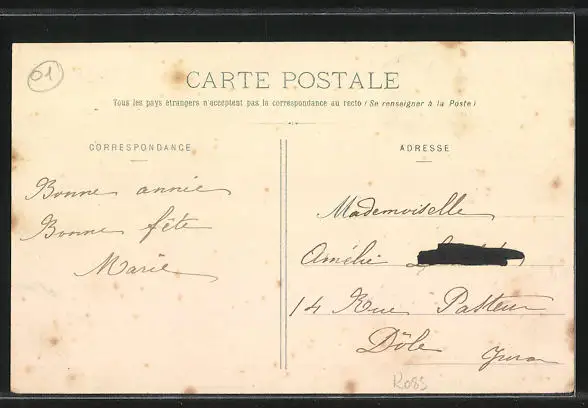 01
CARTE POSTALE
Tous les pays étrangers n'acceptent pas la correspondance au recto (Se renseigner à la Poste)
CORRESPONDANCE
Bonne année
Bonne fête
Marie
ADRESSE
Mademoiselle
Amélie
14 Rue Pasteur
Dôle Jura
R085